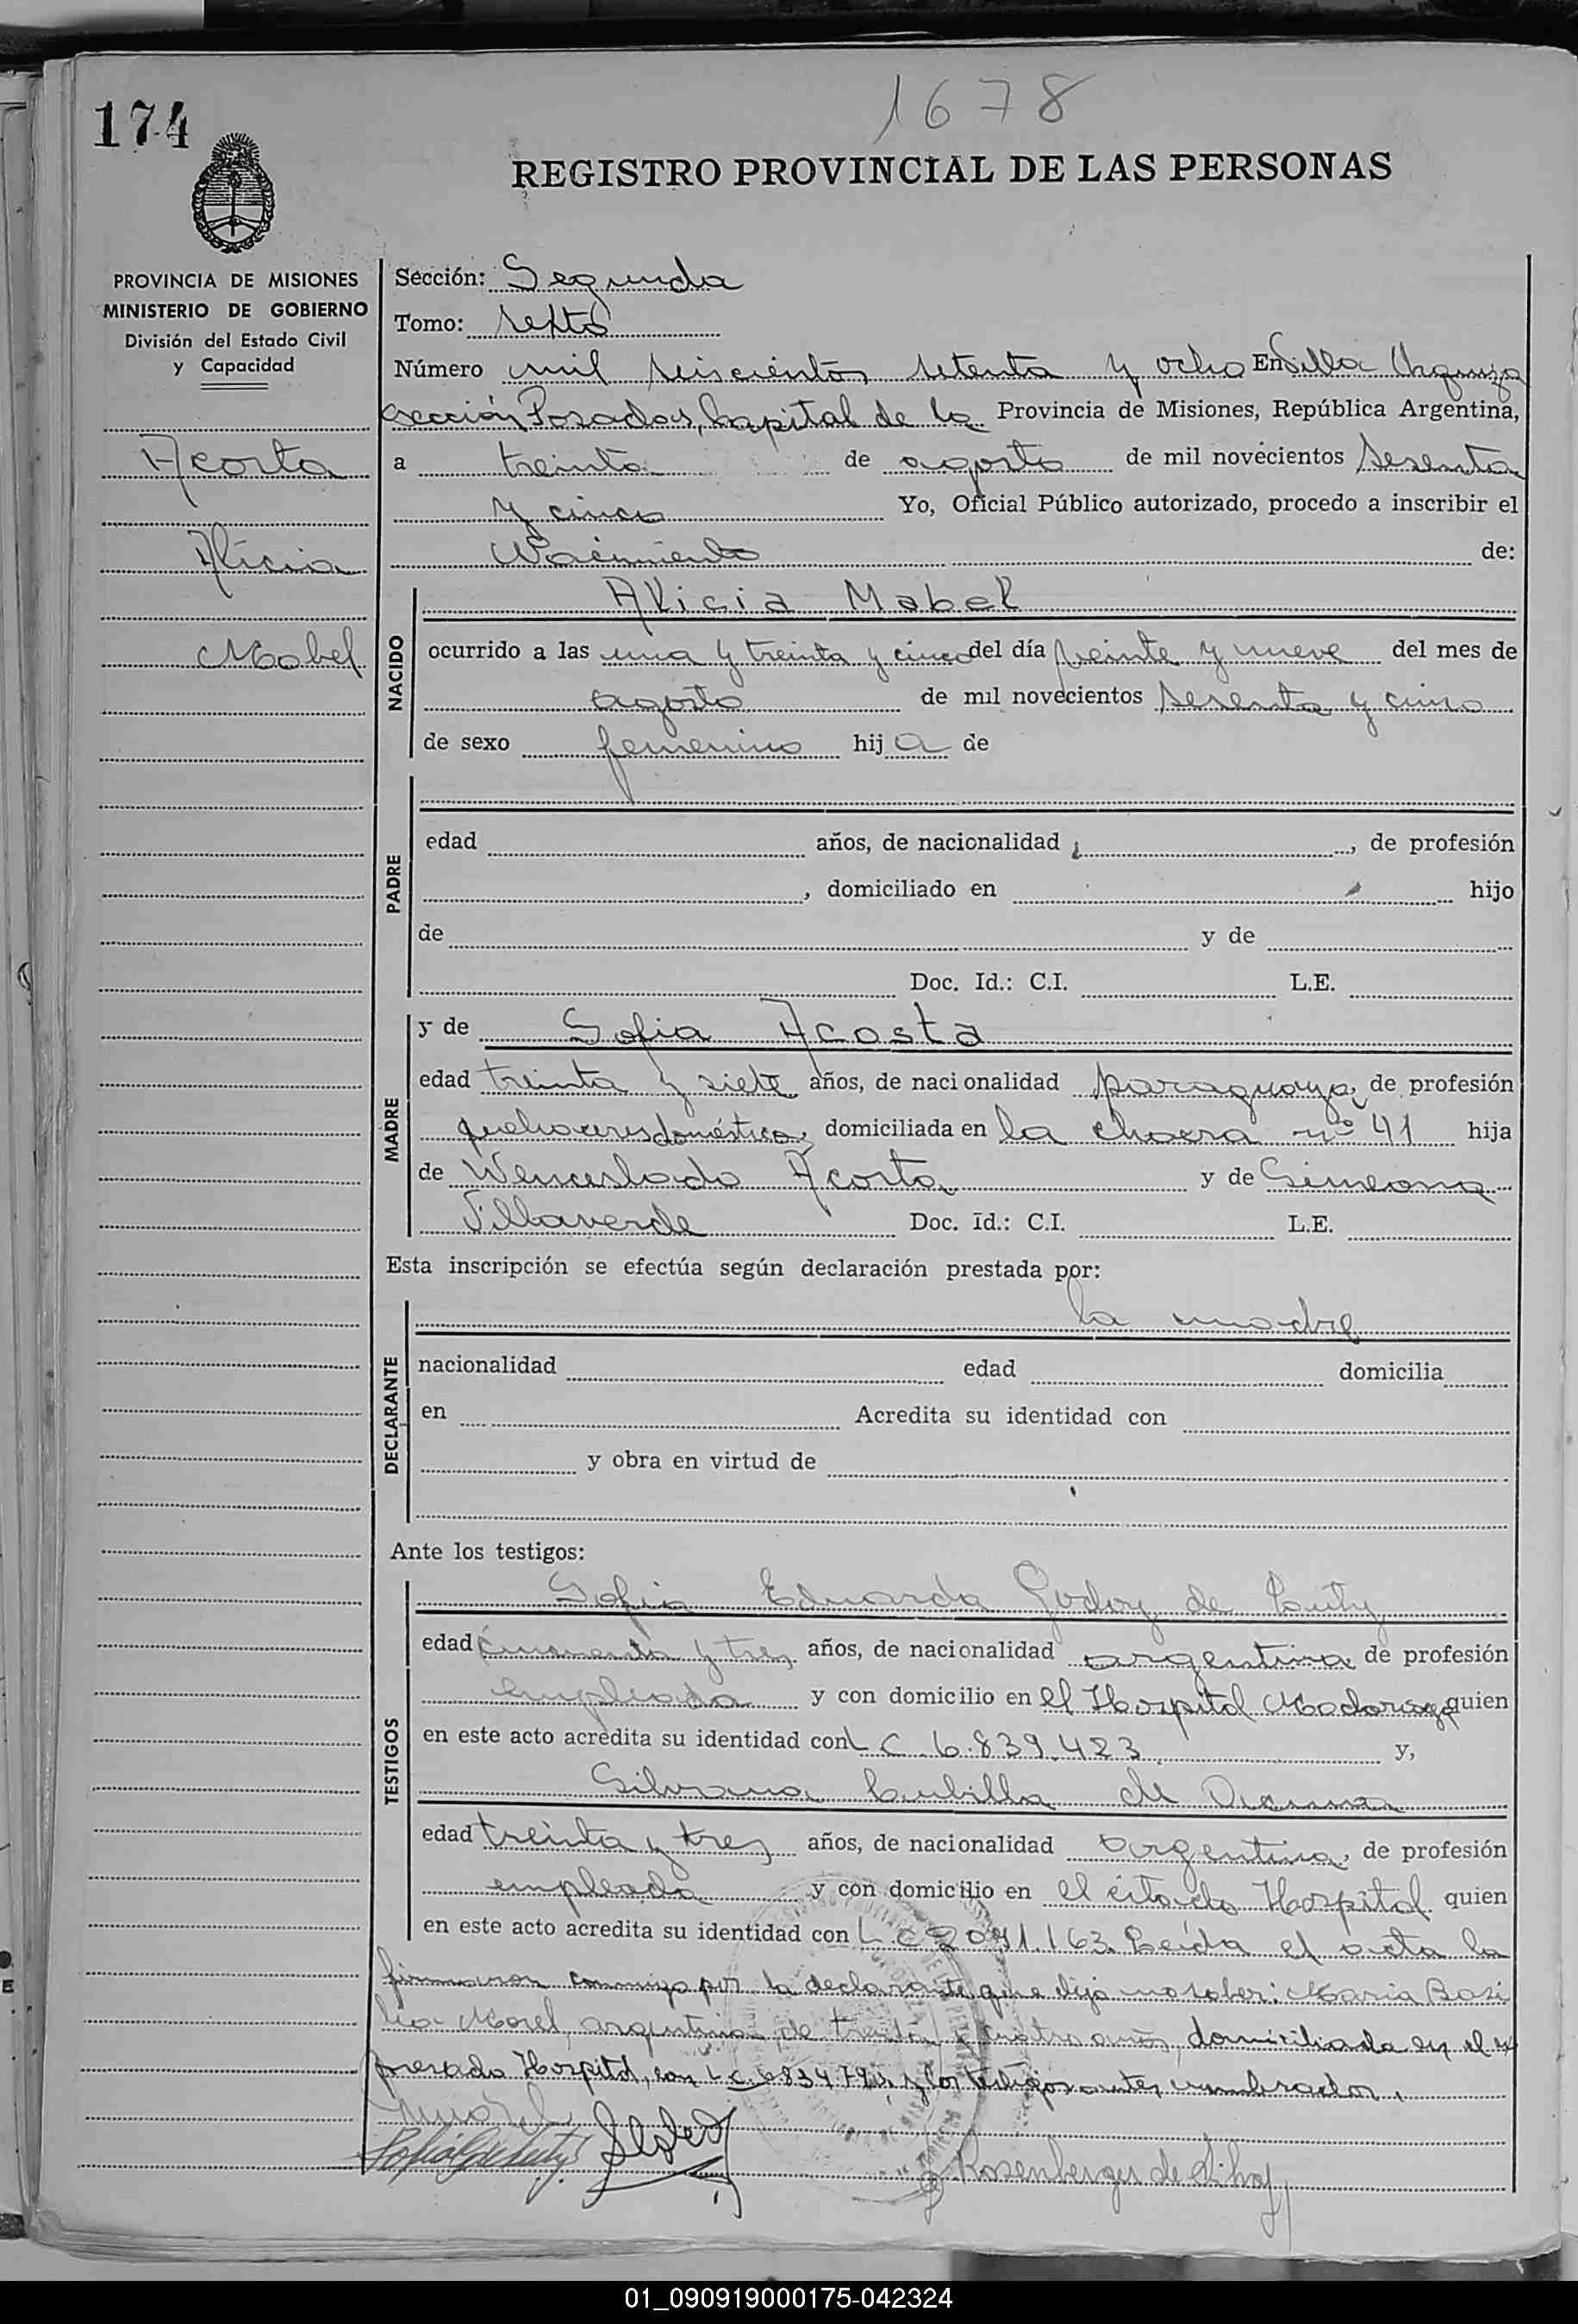 1678
174
REGISTRO PROVINCIAL DE LAS PERSONAS
PROVINCIA DE MISIONES
MINISTERIO DE GOBIERNO
División del Estado Civil
y Capacidad
Acosta
Alicia
Mabel
Sección: Segunda
Tomo: sexto
Número mil seiscientos setenta y ocho En Villa Urquiza
sección Posadas, Capital de la Provincia de Misiones, República Argentina,
a treinta de agosto de mil novecientos sesenta
y cinco Yo, Oficial Público autorizado, procedo a inscribir el
Nacimiento de:
NACIDO
Alicia Mabel
ocurrido a las una y treinta y cinco del día veinte y nueve del mes de
agosto de mil novecientos sesenta y cinco
de sexo femenino hija de
PADRE
edad años, de nacionalidad , de profesión
, domiciliado en hijo
de y de
Doc. Id.: C.I. L.E.
MADRE
y de Sofia Acosta
edad treinta y siete años, de nacionalidad paraguaya, de profesión
quehaceres domésticos, domiciliada en la chacra nº 41 hija
de Wenceslado Acosta y de Simeona
Villaverde Doc. Id.: C.I. L.E.
Esta inscripción se efectúa según declaración prestada por:
DECLARANTE
la madre
nacionalidad edad domicilia
en Acredita su identidad con
y obra en virtud de
Ante los testigos:
TESTIGOS
Sofia Eduarda Godoy de Luty
edad cincuenta y tres años, de nacionalidad argentina de profesión
empleada y con domicilio en el Hospital Madariaga quien
en este acto acredita su identidad con L C 6.839.423 y,
Silvana Cubilla de
edad treinta y tres años, de nacionalidad argentina, de profesión
empleada y con domicilio en el citado Hospital quien
en este acto acredita su identidad con L.C Leída el acta la
firmaron conmigo por la declarante que dijo no saber: Maria Basi
lia Morel, argentina de treinta y cuatro años, domiciliada en el ex
presado Hospital, con L.C. y los testigos antes nombrados.
Rosenberger de
01_090919000175-042324